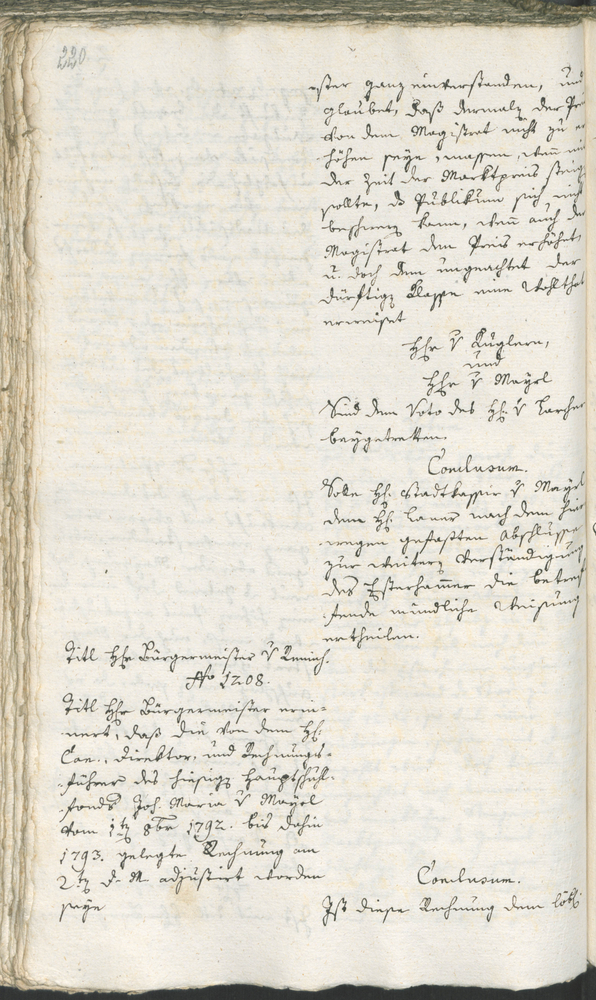 220.
ster ganz einverstanden, und
glaubet, daß dermalen der Preis
von dem Magistrat nicht zu er
höhen seye, massen, wenn mit
der Zeit der Marktpreis steigen
sollte, das Publikum sich nicht
beschweren kann, wenn auch der
Magistrat den Preis erhöhet,
u. doch dem ungeachtet der
dürftigen Klasse eine Wohlthat
erweiset
Hhr v Kuglern,
und
Hhr v Mayrl
Sind dem Voto des H: v Larcher
beygetretten.
Conclusum.
Solle H: Stadtkassier v Mayrl
dem H: Laner nach dem hier
wegen gefaßten Abschlusse
zur weitern Verständigung
des Esterhamer die betref
fende mündliche Weisung
ertheilen.
Titl Hhr Bürgermeister v Remich.
No 1208.
Titl Hhr Bürgermeister erin-
nert, daß die von dem H:
Can., Direktor, und Rechnungs-
führer des hiesigen Hauptschul-
fonds Joh. Maria v Mayrl
vom 1ten 8ber 1792. bis dahin
1793. gelegte Rechnung am
2ten d. M. adjustirt worden
seye
Conclusum.
Ist diese Rechnung dem löbl: